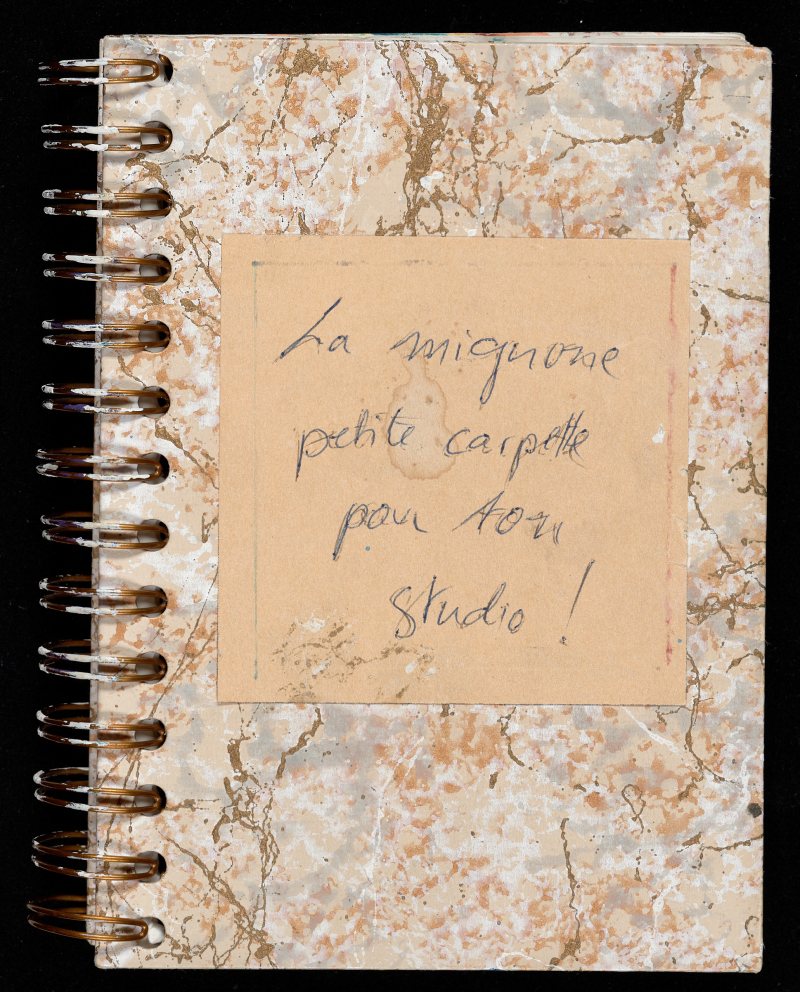 La mignone
petite carpette
pour ton
studio !